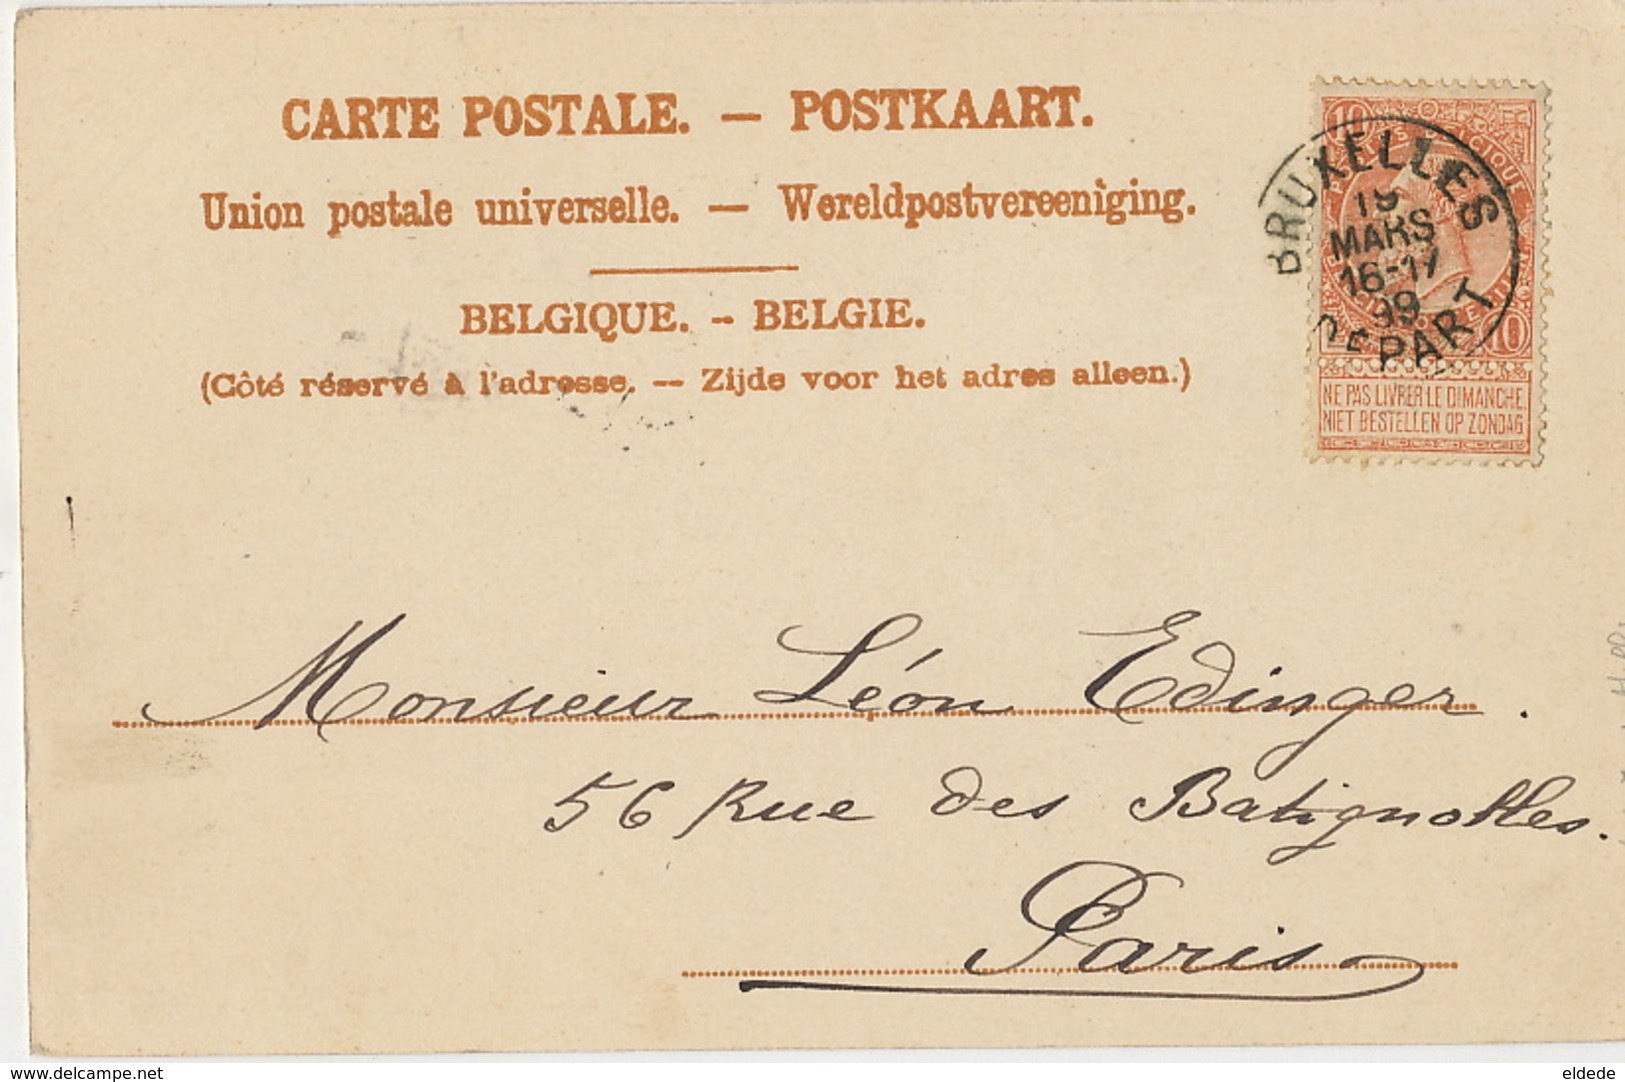 CARTE POSTALE. — POSTKAART.
Union postale universelle. — Wereldpostvereeniging.
BELGIQUE. -- BELGIE.
(Côté réservé à l'adresse. -- Zijde voor het adres alleen.)
10
BRUXELLES
19
MARS
16-17
99
DEPART
10
NE PAS LIVRER LE DIMANCHE.
NIET BESTELLEN OP ZONDAG
Monsieur Léon Edinger.
56 Rue des Batignolles.
Paris
www.delcampe.net
eldede